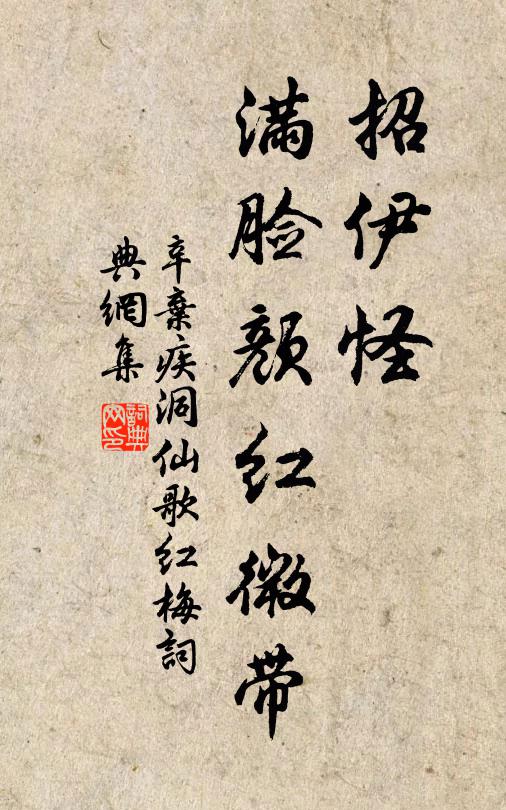 招伊怪
满脸颜红微带
辛棄疾洞仙歌红梅詞
典網集
詞典网印